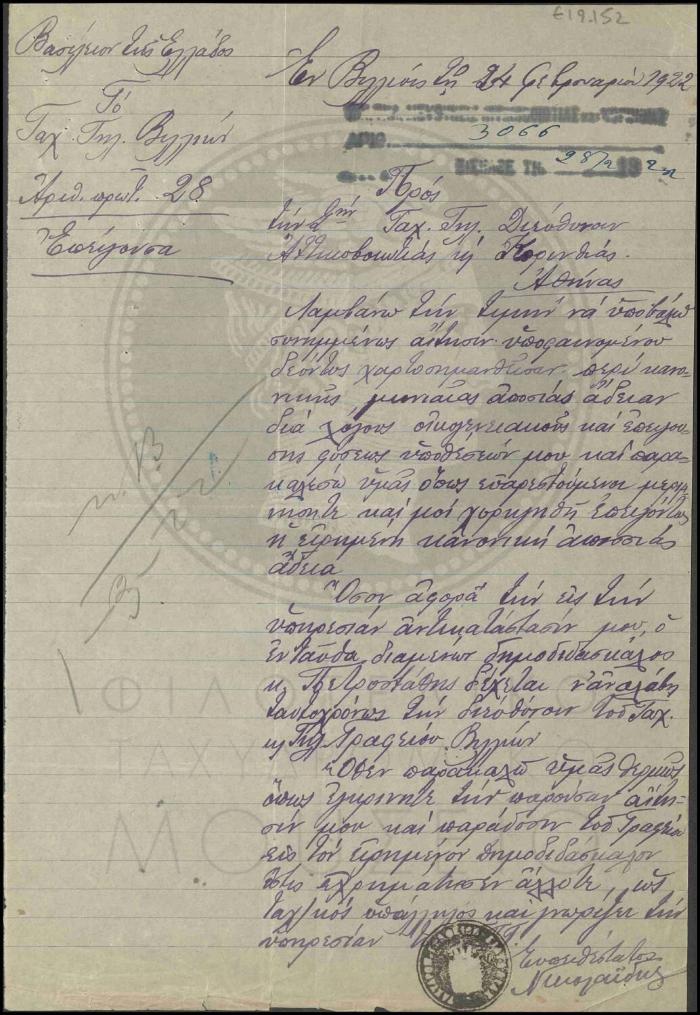 Ε19.152
Βασίλειον της Ελλάδος
Τό
Ταχ. Τηλ. Βιλλιών
Αριθ. πρωτ. 28
Επείγουσα
Εν Βιλλίοις τη 24 Φεβρουαρίου 1922
ΑΡΙΘ. 3066
28/2 19 22
Πρός
την Ταχ. Τηλ. Διεύθυνσιν
Αττικοβοιωτίας κή Κορινθίας.
Αθήνας
Λαμβάνω την τιμήν νά υποβάλω
συνημμένως αίτησιν υποφαινομένου
δεόντως χαρτοσημανθείσαν περί κανο-
νικής μηνιαίας απουσίας άδειαν
διά λόγους οικογενειακούς και επειγού-
σης φύσεως υποθέσεών μου και παρα-
καλέσω υμάς όπως ευαρεστούμενοι μεριμ-
νήσητε και μοί χορηγηθή επειγόντως
η ειρημένη κανονική απουσίας
άδεια
Όσον αφορά την εις την
υπηρεσίαν αντικατάστασίν μου, ο
ενταύθα διαμένων δημοδιδάσκαλος
κ. Πετροστάθης δέχεται ν' αναλάβη
ταυτοχρόνως την διεύθυνσιν του Ταχ.
κή Τηλ. Γραφείου Βιλλιών
Όθεν παρακαλώ υμάς θερμώς
όπως εγκρίνητε την παρούσαν αίτη-
σίν μου και παράδοσιν του Γραφείου
εις τον ειρημένον δημοδιδάσκαλον
όστις εχρημάτισεν άλλοτε, ως
ταχ/κός υπάλληλος και γνωρίζει την
υπηρεσίαν
Ευπειθέστατος
Νικολαΐδης